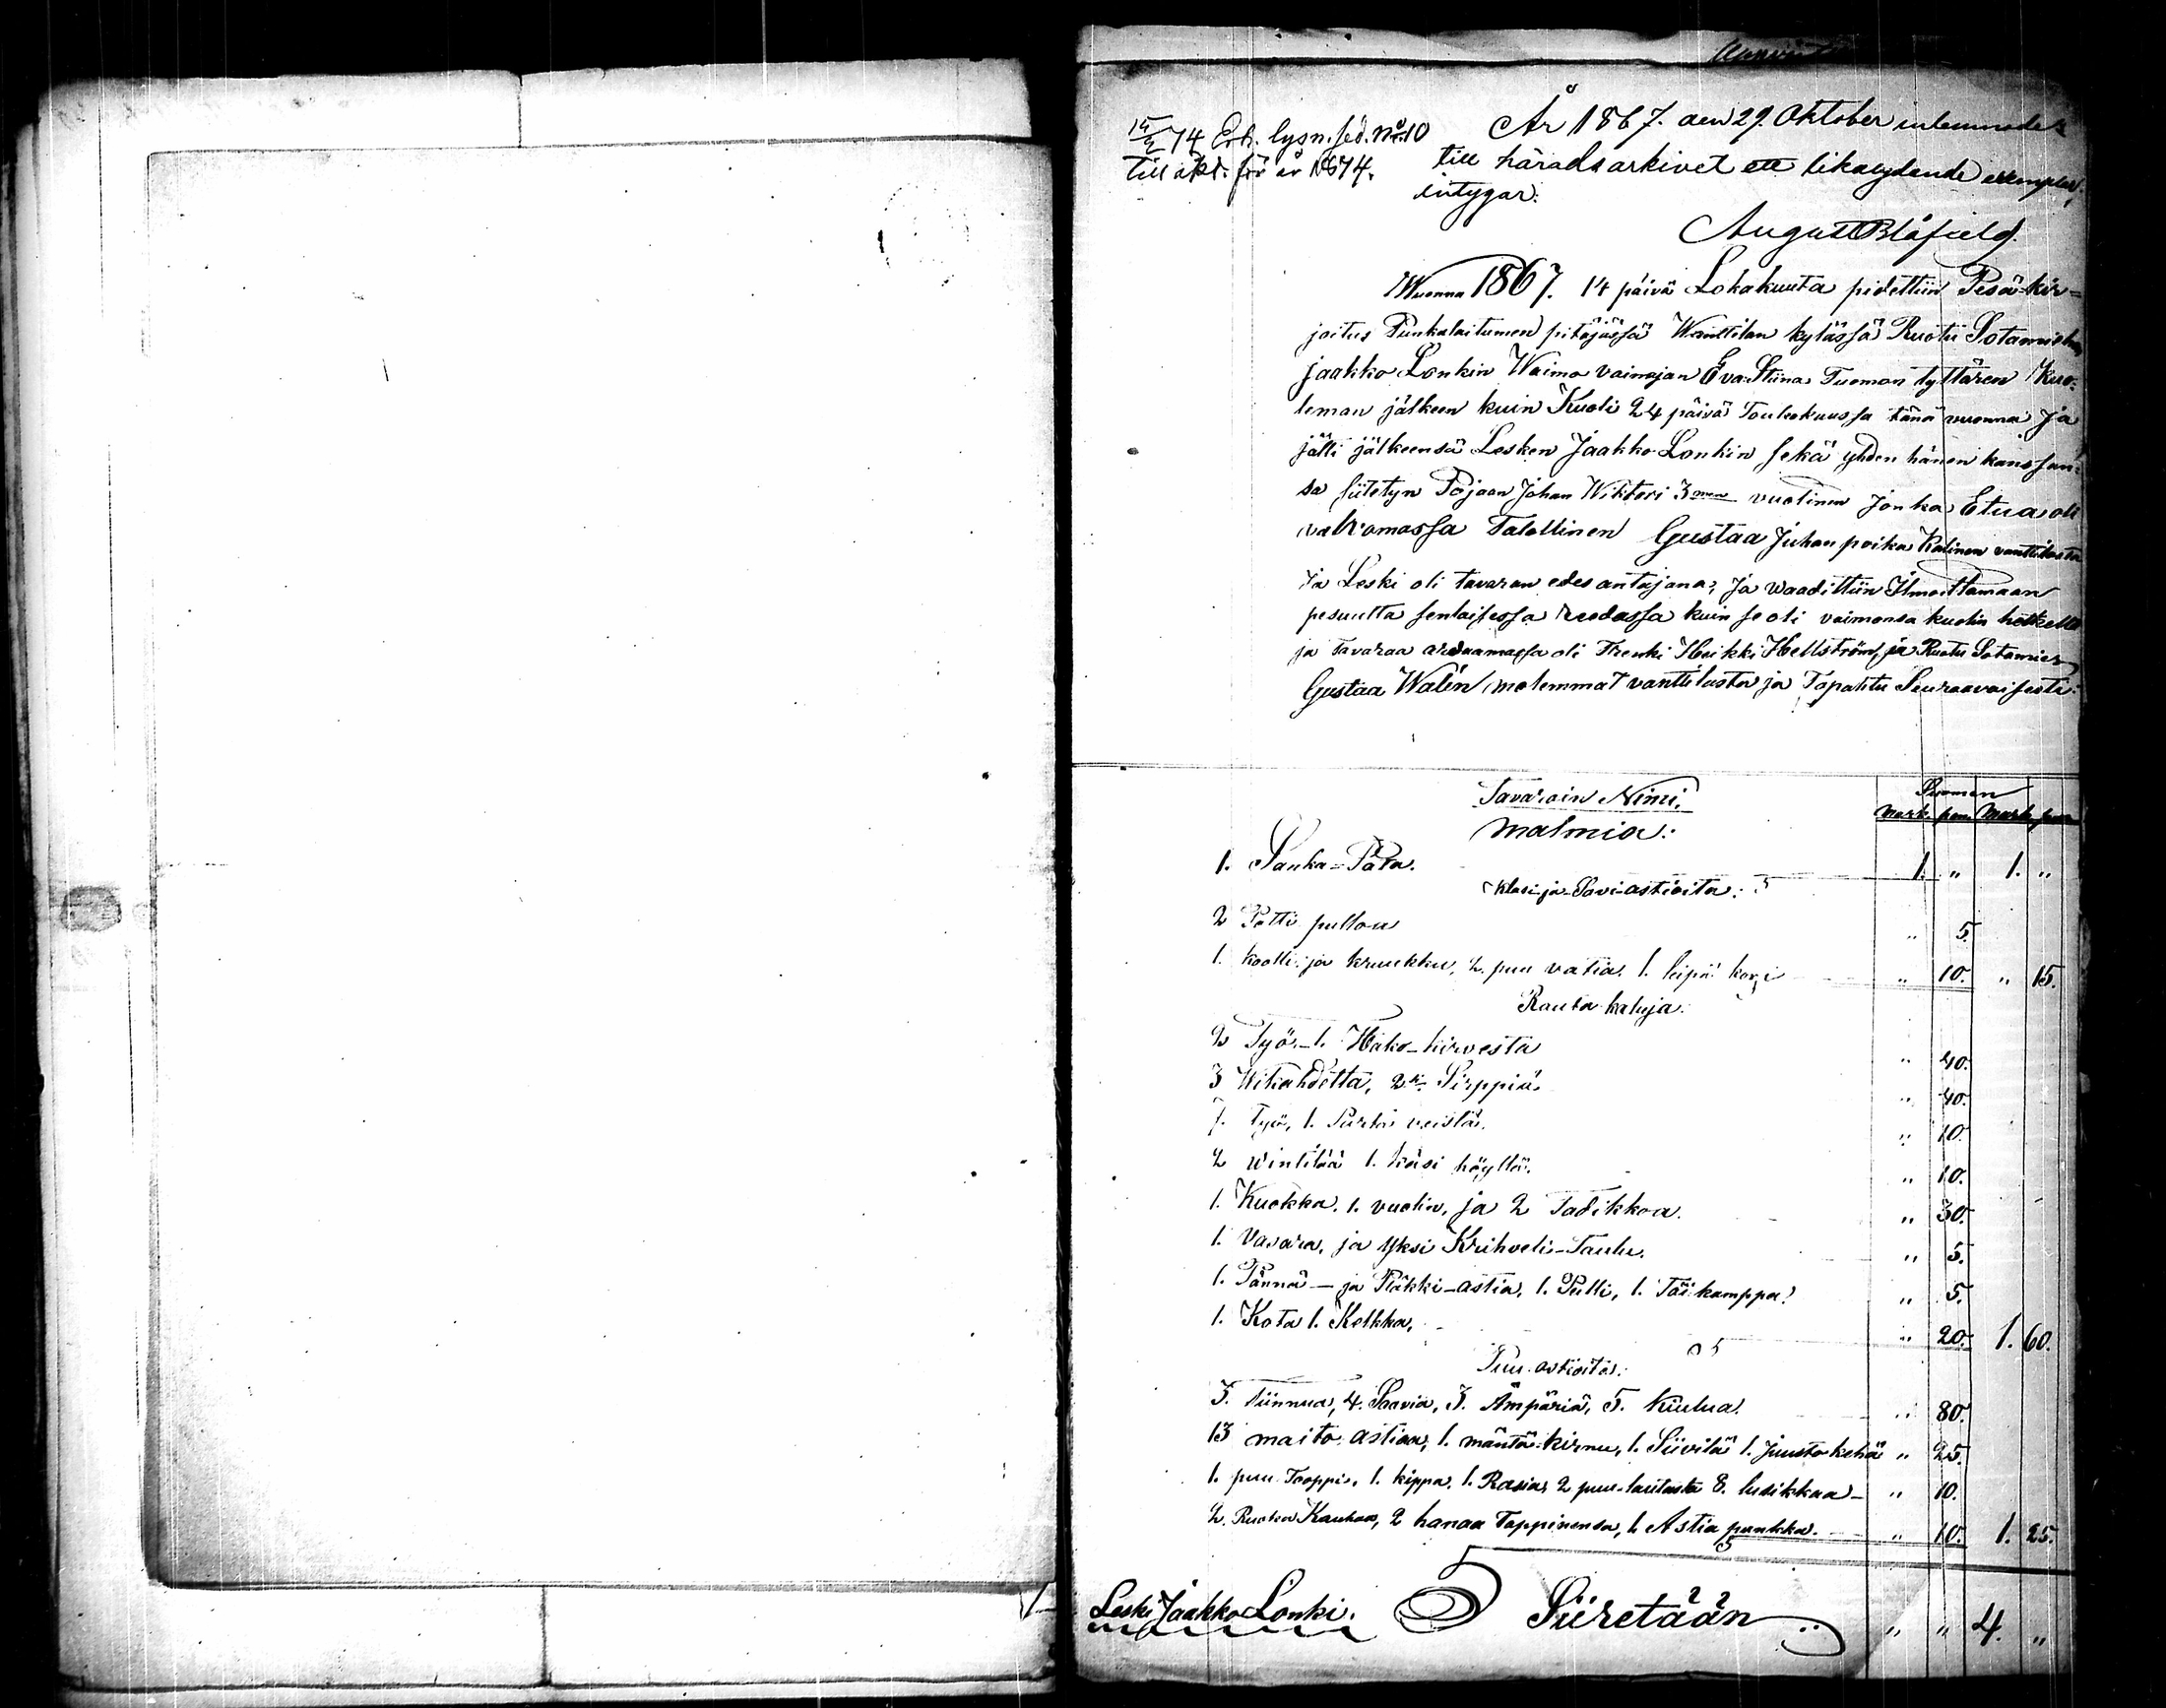 14/2 74 Erh. lysn. sed. No 10
till akt. för år 1874.
År 1867. den 29. Oktober inlemnades
till häradsarkivet ett likalydende exemplar,
intygar:
August Blåfield.
Wuonna 1867. 14 päivä Lokakuuta pidettiin Pesä-kir=
joitus Punkalaitumen pitäjässä Wanttilan kylässä Ruotu Sotamiehen
Jaakko Lonkin Waimo vainajan Eva Stiina Tuoman tyttären Kuo=
leman jälkeen kuin Kuoli 24 päivä Toukokuussa tänä vuonna Ja
jätti jälkeensä Lesken Jaakko Lonkin sekä yhden hänen kanssan=
sa siitetyn Pojan Johan Wiktori 3men vuotinen Jonka Etua oli
valvomassa Talollinen Gustaa Juhan poika Kalinen vanttilasta
Ja Leski oli tavaran edes antajana; Ja waadittiin Ilmoittamaan
pesuutta senlaisessa reedassa kuin se oli vaimonsa kuolin hetkellä
ja Tavaraa arvaamassa oli Trenki Heikki Hellström, ja Ruotu Sotamies
Gustaa Walén molemmat vanttilasta ja Tapahtu Seuraavaisesti:
Tavarain Nimi. Suomen
Mark. pen. Mark. pen
Malmia:
1. Sanka=Pata. 1. " 1. "
Klasi ja Savi-astioita:
2 Potti pulloa " 5.
1. kaalli ja kruukku, 2. puu vatia. 1. leipä kori " 10. " 15.
Rauta kaluja:
2 Työ-1. Hako-kirvestä " 40.
3 Wikahdetta, 2 Sirppiä. " 40.
7. Työ, 1. Purta veistä. " 10.
2 wintilää 1. käsi höyllä. " 10.
1. Kuokka. 1. vuolin, ja 2 Tadikkoa. " 30.
1. Vasara, ja Yksi Krihveli-Taulu. " 5.
1. Pännä - ja Pläkki-astia, 1. Pilli, 1. Täi kamppa. " 5.
1. Kota 1. Kelkka, " 20. 1. 60.
Puu astioita:
3. Tiinnua, 4. Saavia, 3. Ämpäriä, 5. kiulua. " 80.
13 maito astiaa, 1. mäntä-kirnu, 1. Siivilä 1. Juusto kehä " 25.
1. puu Tooppi, 1. kippa, 1. Rasia, 2 puu-lautasta 8. lusikkaa - " 10.
2. Ruoka Kauhaa, 2 hanaa Tappinensa, 1. Astia punkka. " 10. 1. 25.
Leski Jaakko Lonki. Siiretään " " 4. "